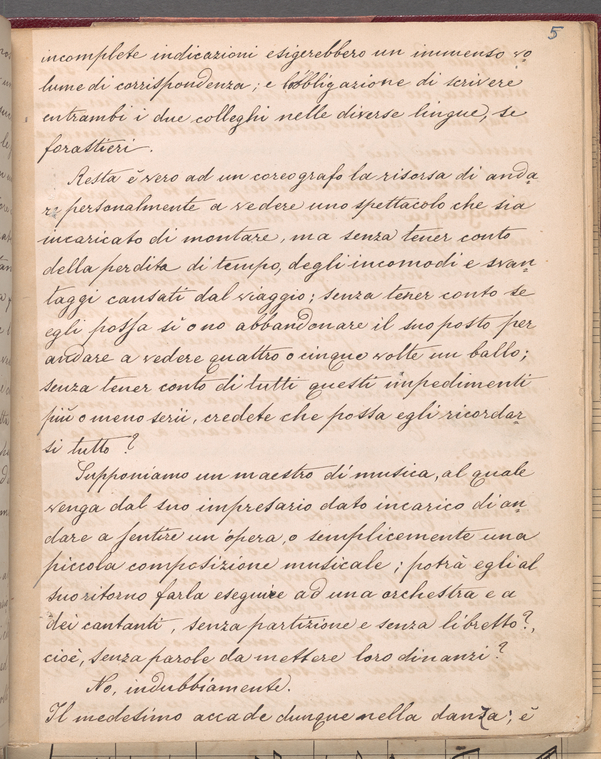 5
incomplete indicazioni esigerebbero un immenso vo
lume di corrispondenza; e l'obbligazione di scrivere
entrambi i due colleghi nelle diverse lingue, se
forastieri.
Resta è vero ad un coreografo la risorsa di anda
re personalmente a vedere uno spettacolo che sia
incaricato di montare, ma senza tener conto
della perdita di tempo, degli incomodi e svan
taggi causati dal viaggio; senza tener conto se
egli possa si o no abbandonare il suo posto per
andare a vedere quattro o cinque volte un ballo;
senza tener conto di tutti questi impedimenti
più o meno serii, credete che possa egli ricordar
si tutto?
Supponiamo un maestro di musica, al quale
venga dal suo impresario dato incarico di an
dare a sentire un'opera, o semplicemente una
piccola composizione musicale; potrà egli al
suo ritorno farla eseguire ad una orchestra e a
dei cantanti, senza partizione e senza libretto?,
cioè, senza parole da mettere loro dinanzi?
No, indubbiamente.
Il medesimo accade dunque nella danza; è